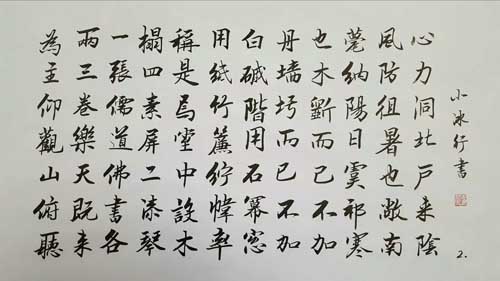 心力洞北戶来陰
風防徂暑也敞南
甍納陽日虞祁寒
也木斲而已不加
丹墙圬而已不加
白磩階用石冪窓
用紙竹簾紵幃率
稱是焉堂中設木
榻四素屏二漆琴
一張儒道佛書各
兩三卷樂天既来
為主仰觀山俯聽
小冰行書
2.